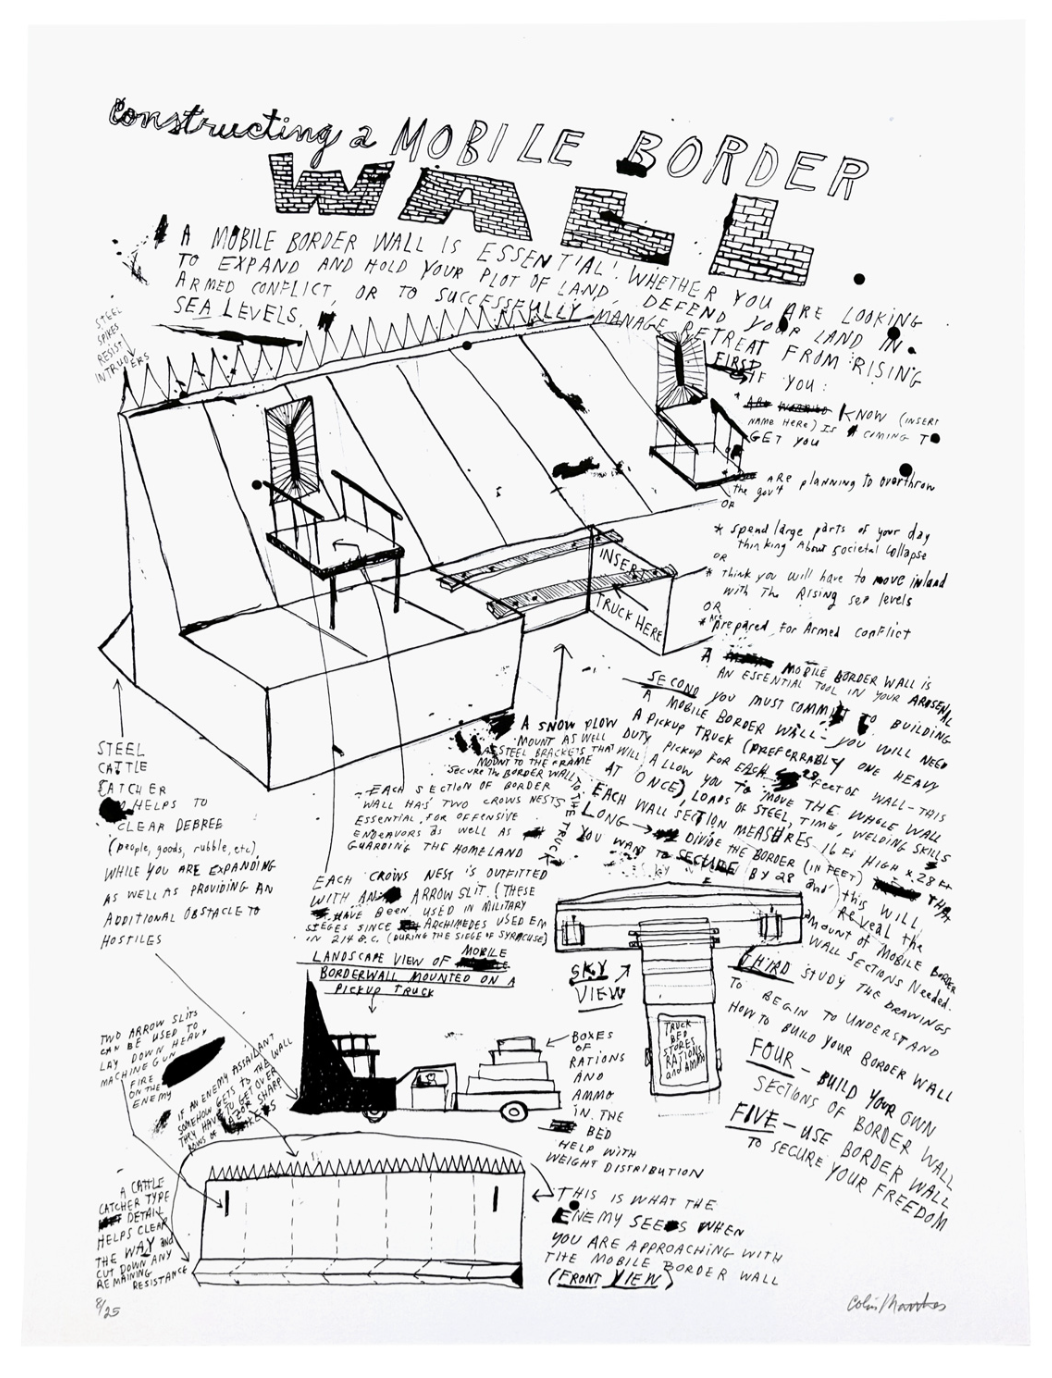 Constructing a MOBILE BORDER
WALL
A MOBILE BORDER WALL IS ESSENTIAL! WHETHER YOU ARE LOOKING
TO EXPAND AND HOLD YOUR PLOT OF LAND, DEFEND YOUR LAND IN
ARMED CONFLICT, OR TO SUCCESSFULLY MANAGE RETREAT FROM RISING
SEA LEVELS.
STEEL
SPIKES
RESIST
INTRUDERS
FIRST
IF YOU:
KNOW (INSERT
NAME HERE) IS COMING TO
GET YOU
ARE planning to overthrow
the gov't
OR
* spend large parts of your day
thinking About societal collapse
OR
* Think you will have to move inland
with The Rising sea levels
OR
* prepared for Armed conflict
A MOBILE BORDER WALL IS
AN ESSENTIAL TOOL IN YOUR ARSENAL
INSERT
TRUCK HERE
SECOND YOU MUST COMMIT TO BUILDING
A MOBILE BORDER WALL - YOU WILL NEED
A PICKUP TRUCK (PREFERRABLY ONE HEAVY
DUTY PICKUP FOR EACH 28 FEET OF WALL - THIS
WILL ALLOW YOU TO MOVE THE WHOLE WALL
AT ONCE), LOADS OF STEEL, TIME, WELDING SKILLS
EACH WALL SECTION MEASURES 16 Ft HIGH x 28 Ft
LONG → DIVIDE THE BORDER (IN FEET) THAT
YOU WANT TO SECURE BY 28 and this WILL
Reveal the
Amount of MOBILE BORDER
WALL SECTIONS Needed.
A SNOW PLOW
MOUNT AS WELL
AS STEEL BRACKETS THAT
MOUNT TO THE FRAME
SECURE THE BORDER WALL
TO THE TRUCK
STEEL
CATTLE
CATCHER
HELPS TO
CLEAR DEBREE
(people, goods, rubble, etc)
WHILE YOU ARE EXPANDING
AS WELL AS PROVIDING AN
ADDITIONAL OBSTACLE TO
HOSTILES
- EACH SECTION OF BORDER
WALL HAS TWO CROWS NESTS
ESSENTIAL FOR OFFENSIVE
ENDEAVORS as WELL AS
GUARDING THE HOMELAND
EACH CROWS NEST IS OUTFITTED
WITH AN ARROW SLIT (THESE
HAVE BEEN USED IN MILITARY
SIEGES SINCE ARCHIMEDES USED EM
IN 214 B.C. (DURING THE SIEGE OF SYRACUSE)
LANDSCAPE VIEW OF MOBILE
BORDERWALL MOUNTED ON A
PICKUP TRUCK
SKY
VIEW
TRUCK
BED
STORES
RATIONS
and AMMO
THIRD STUDY THE DRAWINGS
TO BEGIN TO UNDERSTAND
HOW TO BUILD YOUR BORDER WALL
FOUR - BUILD YOUR OWN
SECTIONS OF BORDER WALL
FIVE - USE BORDER WALL
TO SECURE YOUR FREEDOM
BOXES
OF
RATIONS
AND
AMMO
IN THE
BED
HELP WITH
WEIGHT DISTRIBUTION
TWO ARROW SLITS
CAN BE USED TO
LAY DOWN HEAVY
MACHINE GUN
FIRE
ON THE
ENEMY
IF AN ENEMY ASSAILANT
SOMEHOW GETS TO THE WALL
THEY HAVE TO GET OVER
ROWS OF SHARP
A CATTLE
CATCHER TYPE
DETAIL
HELPS CLEAR
THE WAY and
CUT DOWN ANY
REMAINING
RESISTANCE
THIS IS WHAT THE
ENEMY SEES WHEN
YOU ARE APPROACHING WITH
THE MOBILE BORDER WALL
(FRONT VIEW)
8/25